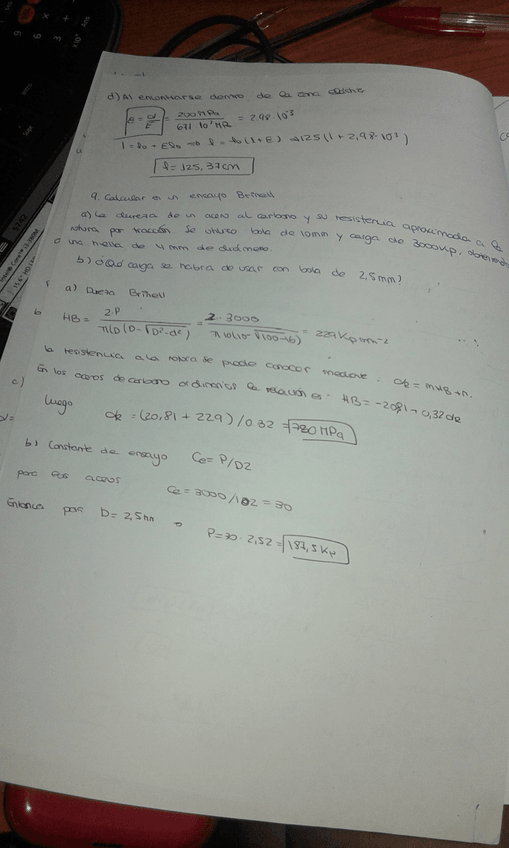 d) Al encontrarse dentro de la zona elástica
= 200 MPa / 671·10³ MPa = 2.98·10⁻³
l = l₀ + El₀ ⇒ l = l₀(1+E) → 125(1 + 2,98·10⁻³)
l = 125,37cm
9. Calcular en un ensayo Brinell
a) La dureza de un acero al carbono y su resistencia aproximada a la
rotura por tracción. Se utilizo bola de 10mm y carga de 3000Kp, obteniendo
una huella de 4mm de diámetro.
b) ¿Qué carga se habra de usar con bola de 2,5mm?
a) Dureza Brinell
HB = 2·P / π(D(D-√D²-d²) = 2·3000 / π10(10-√(100-16) = 229 Kp mm-2
la resistencia a la rotura se puede conocer mediante: = mHB+n.
En los aceros de carbono ordinarios la relación es: HB = -20,81 + 0,32
c)
Luego
= (20,81 + 229) / 0.32 = 780 MPa
b) Constante de ensayo Ce = P/D2
para los aceros
Ce = 3000/102 = 30
Entonces para D = 2,5mm
P = 30 · 2,52 = 187,5 Kp